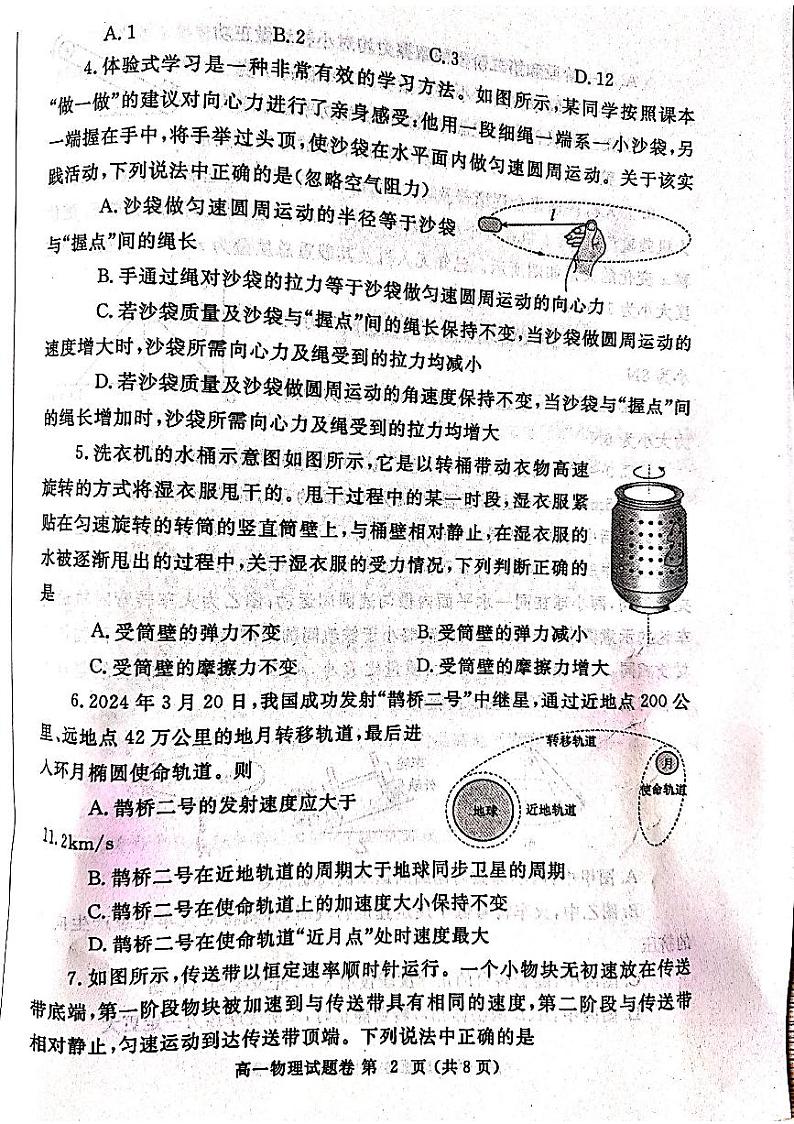 A. 1 B. 2 C. 3 D. 12
4. 体验式学习是一种非常有效的学习方法。如图所示,某同学按照课本
“做一做”的建议对向心力进行了亲身感受;他用一段细绳一端系一小沙袋,另
一端握在手中,将手举过头顶,使沙袋在水平面内做匀速圆周运动。关于该实
践活动,下列说法中正确的是(忽略空气阻力)
A. 沙袋做匀速圆周运动的半径等于沙袋
与“握点”间的绳长
l
B. 手通过绳对沙袋的拉力等于沙袋做匀速圆周运动的向心力
C. 若沙袋质量及沙袋与“握点”间的绳长保持不变,当沙袋做圆周运动的
速度增大时,沙袋所需向心力及绳受到的拉力均减小
D. 若沙袋质量及沙袋做圆周运动的角速度保持不变,当沙袋与“握点”间
的绳长增加时,沙袋所需向心力及绳受到的拉力均增大
5. 洗衣机的水桶示意图如图所示,它是以转桶带动衣物高速
旋转的方式将湿衣服甩干的。甩干过程中的某一时段,湿衣服紧
贴在匀速旋转的转筒的竖直筒壁上,与桶壁相对静止,在湿衣服的
水被逐渐甩出的过程中,关于湿衣服的受力情况,下列判断正确的
是
A. 受筒壁的弹力不变 B. 受筒壁的弹力减小
C. 受筒壁的摩擦力不变 D. 受筒壁的摩擦力增大
6. 2024 年 3 月 20 日,我国成功发射“鹊桥二号”中继星,通过近地点 200 公
里、远地点 42 万公里的地月转移轨道,最后进
入环月椭圆使命轨道。则
转移轨道
月
使命轨道
地球 近地轨道
A. 鹊桥二号的发射速度应大于
11.2km/s
B. 鹊桥二号在近地轨道的周期大于地球同步卫星的周期
C. 鹊桥二号在使命轨道上的加速度大小保持不变
D. 鹊桥二号在使命轨道“近月点”处时速度最大
7. 如图所示,传送带以恒定速率顺时针运行。一个小物块无初速放在传送
带底端,第一阶段物块被加速到与传送带具有相同的速度,第二阶段与传送带
相对静止,匀速运动到达传送带顶端。下列说法中正确的是
高一物理试题卷 第 2 页(共 8 页)